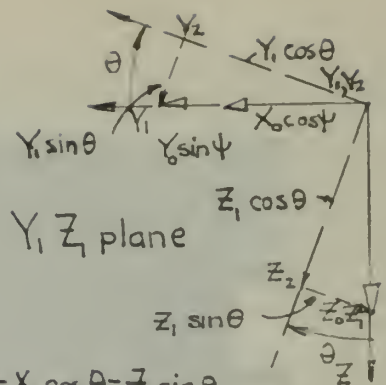 θ
Y₂
Y₁ cosθ
Y₁,Y₂
Y₁
Y₁ sinθ
Y₀ sinψ
X₀ cosψ
Z₁ cosθ
Y₁ Z₁ plane
Z₂
Z₀Z₁
Z₁ sinθ
θ
Z